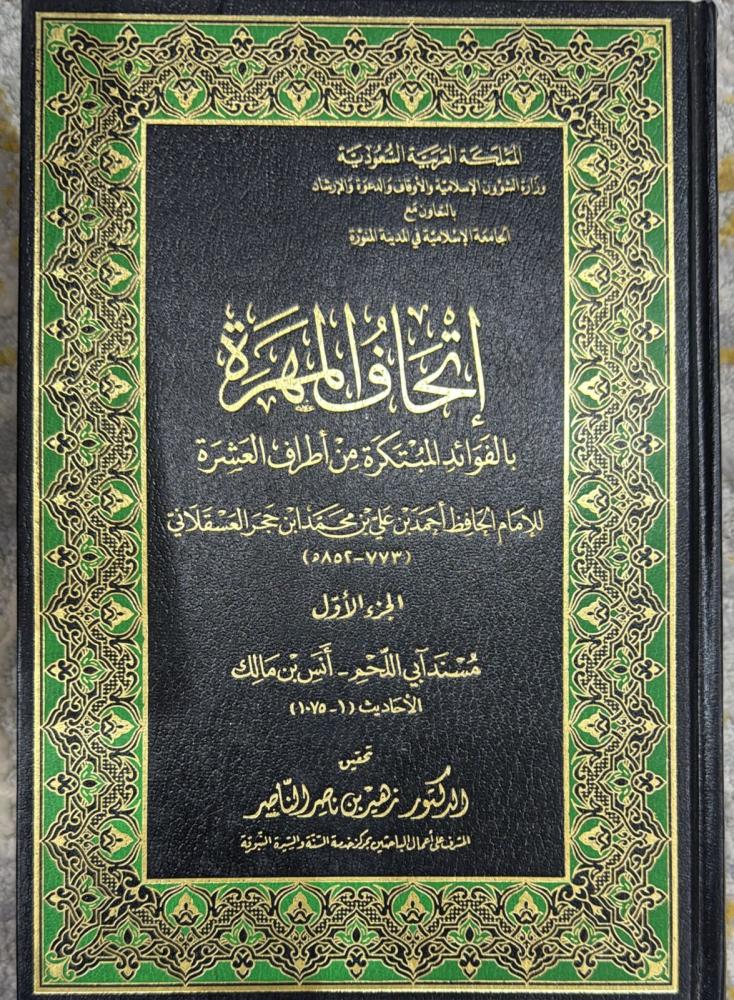 المملكة العربية السعودية
وزارة الشؤون الإسلامية والأوقاف والدعوة والإرشاد
بالتعاون مع
الجامعة الإسلامية في المدينة المنورة
إتْحَافُ المَهَرَة
بالفَوَائدِ المُبْتَكَرَة مِنْ أطْرَافِ العَشَرَة
للإمَام الحَافِظ أحمَد بْن عَلي بْن محَمَّد ابْن حَجَر العَسْقَلَاني
(٧٧٣-٨٥٢ه)
الجزء الأوّل
مُسْنَد آبي اللّحْم - أنَس بْن مَالِك
الأحَاديث (١-١٠٧٥)
تحقيق
الدكتور زهير بن ناصر الناصر
المشرف على أعمال الباحثين بمركز خدمة السنّة والسيرة النبوية